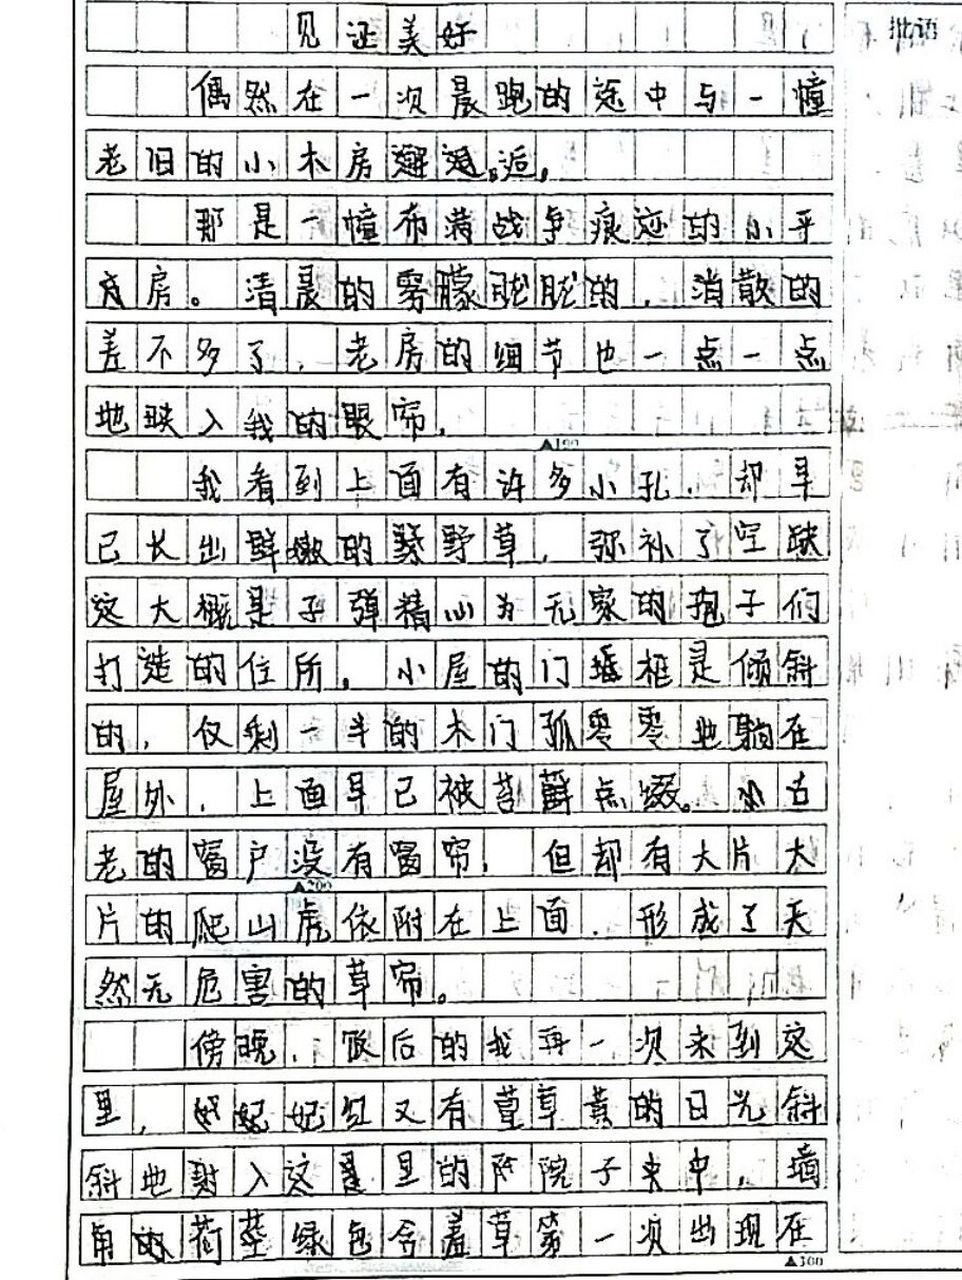 见证美好
批语
偶然在一次晨跑的途中与一幢
老旧的小木房邂逅。
那是一幢布满战争痕迹的小平
房。清晨的雾朦胧胧的,消散的
差不多了,老房的细节也一点一点
地映入我的眼帘,
▲100
我看到上面有许多小孔,却早
已长出鲜嫩的野草,弥补了空缺
这大概是子弹精心为无家的孢子们
打造的住所。小屋的门框是倾斜
的,仅剩一半的木门孤零零地躺在
屋外,上面早已被苔藓点缀。古
老的窗户没有窗帘,但却有大片大
▲200
片的爬山虎依附在上面,形成了天
然无危害的草帘。
傍晚,饭后的我再一次来到这
里,妃红又有草黄的日光斜
斜地射入这里的院子中,墙
角的绿色含羞草第一次出现在
▲300